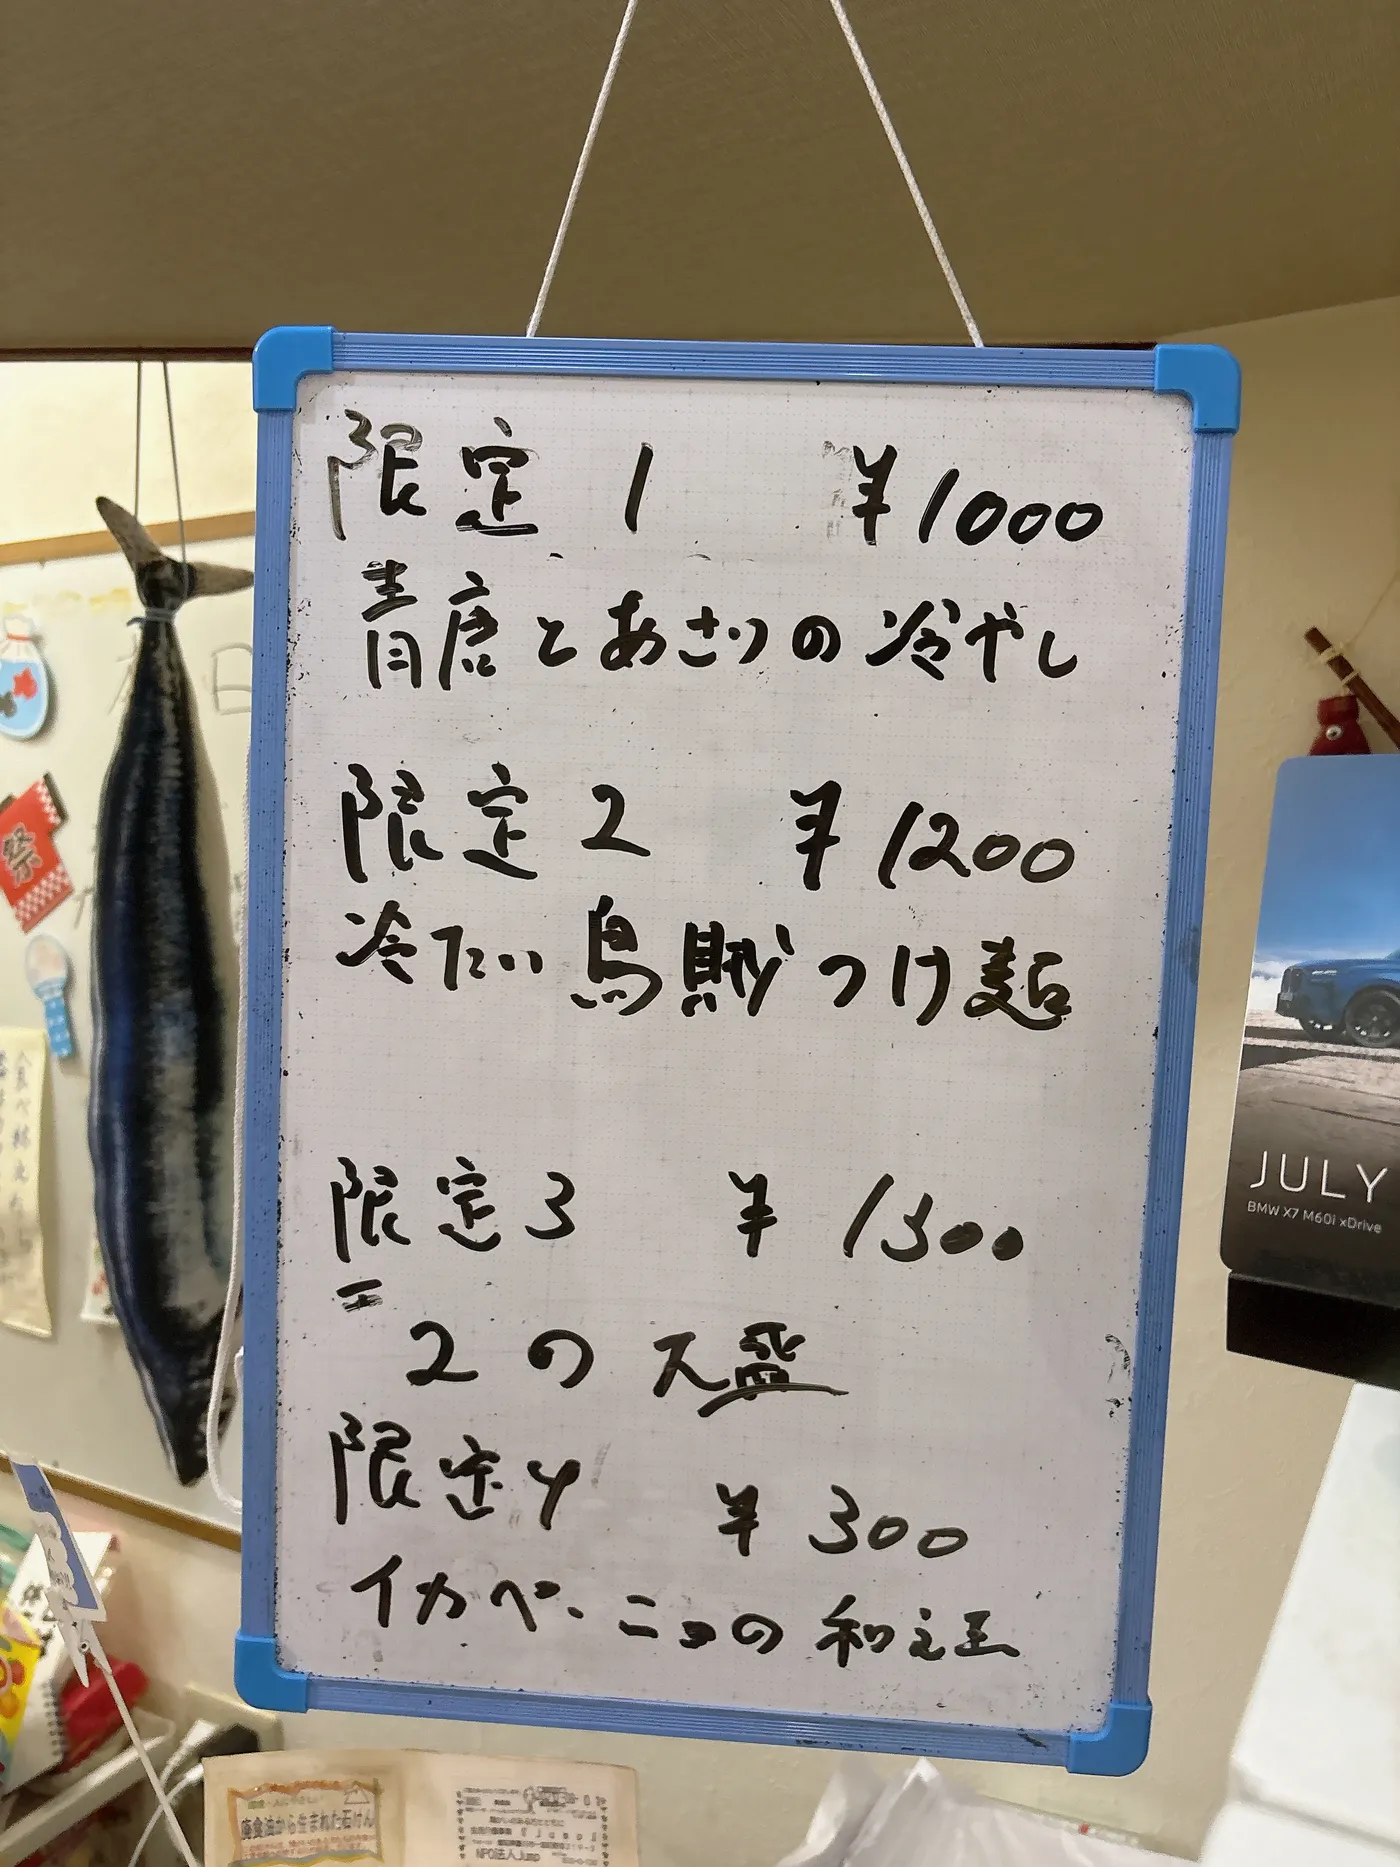 限定1 ¥1000
青唐とあさりの冷やし
限定2 ¥1200
冷たい烏賊つけ麺
限定3 ¥1300
2の大盛
限定4 ¥300
イカペーニョの和え玉
祭
JULY
BMW X7 M60i xDrive
廃食油から生まれた石けん
NPO法人Jump